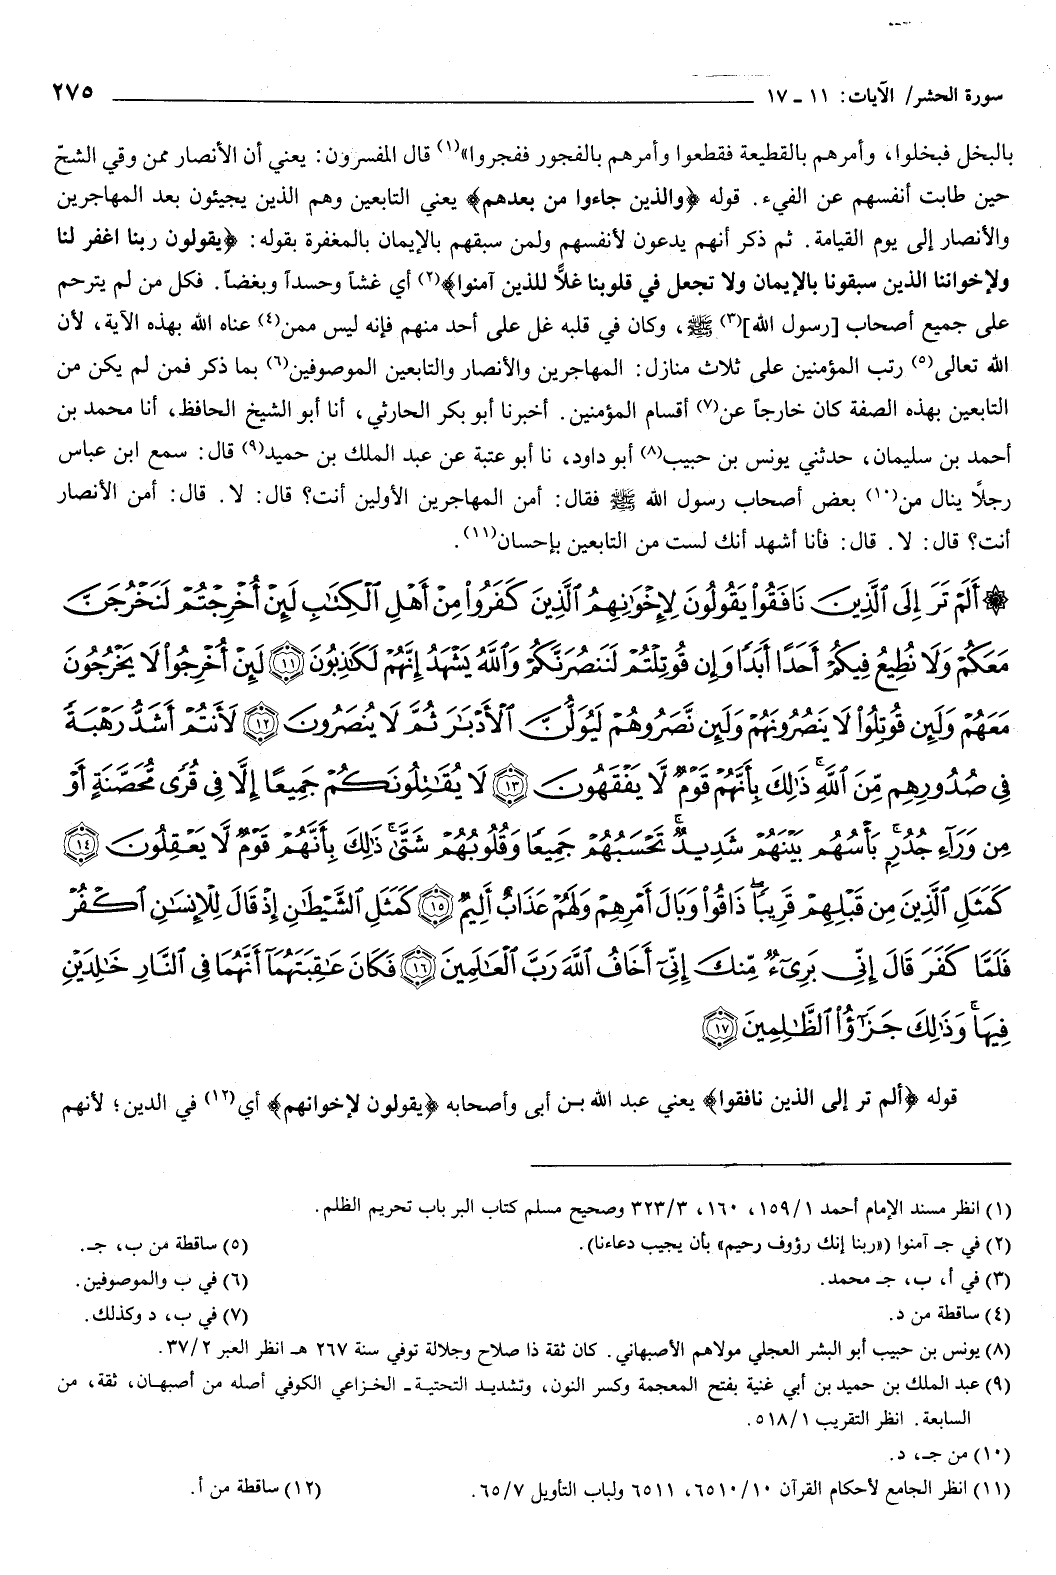 سورة الحشر/ الآيات: ١١ ـ ١٧ ٢٧٥
بالبخل فبخلوا، وأمرهم بالقطيعة فقطعوا وأمرهم بالفجور ففجروا»(١) قال المفسرون: يعني أن الأنصار ممن وقي الشحّ
حين طابت أنفسهم عن الفيء. قوله ﴿والذين جاءوا من بعدهم﴾ يعني التابعين وهم الذين يجيئون بعد المهاجرين
والأنصار إلى يوم القيامة. ثم ذكر أنهم يدعون لأنفسهم ولمن سبقهم بالإيمان بالمغفرة بقوله: ﴿يقولون ربنا اغفر لنا
ولإخواننا الذين سبقونا بالإيمان ولا تجعل في قلوبنا غلاً للذين آمنوا﴾(٢) أي غشاً وحسداً وبغضاً. فكل من لم يترحم
على جميع أصحاب [رسول الله](٣) ﷺ، وكان في قلبه غل على أحد منهم فإنه ليس ممن(٤) عناه الله بهذه الآية، لأن
الله تعالى(٥) رتب المؤمنين على ثلاث منازل: المهاجرين والأنصار والتابعين الموصوفين(٦) بما ذكر فمن لم يكن من
التابعين بهذه الصفة كان خارجاً عن(٧) أقسام المؤمنين. أخبرنا أبو بكر الحارثي، أنا أبو الشيخ الحافظ، أنا محمد بن
أحمد بن سليمان، حدثني يونس بن حبيب(٨) أبو داود، نا أبو عتبة عن عبد الملك بن حميد(٩) قال: سمع ابن عباس
رجلاً ينال من(١٠) بعض أصحاب رسول الله ﷺ فقال: أمن المهاجرين الأولين أنت؟ قال: لا. قال: أمن الأنصار
أنت؟ قال: لا. قال: فأنا أشهد أنك لست من التابعين بإحسان(١١).
۞ أَلَمْ تَرَ إِلَى ٱلَّذِينَ نَافَقُوا۟ يَقُولُونَ لِإِخْوَٰنِهِمُ ٱلَّذِينَ كَفَرُوا۟ مِنْ أَهْلِ ٱلْكِتَٰبِ لَئِنْ أُخْرِجْتُمْ لَنَخْرُجَنَّ
مَعَكُمْ وَلَا نُطِيعُ فِيكُمْ أَحَدًا أَبَدًا وَإِن قُوتِلْتُمْ لَنَنصُرَنَّكُمْ وَٱللَّهُ يَشْهَدُ إِنَّهُمْ لَكَٰذِبُونَ ﴿١١﴾ لَئِنْ أُخْرِجُوا۟ لَا يَخْرُجُونَ
مَعَهُمْ وَلَئِن قُوتِلُوا۟ لَا يَنصُرُونَهُمْ وَلَئِن نَّصَرُوهُمْ لَيُوَلُّنَّ ٱلْأَدْبَٰرَ ثُمَّ لَا يُنصَرُونَ ﴿١٢﴾ لَأَنتُمْ أَشَدُّ رَهْبَةً
فِى صُدُورِهِم مِّنَ ٱللَّهِ ۚ ذَٰلِكَ بِأَنَّهُمْ قَوْمٌ لَّا يَفْقَهُونَ ﴿١٣﴾ لَا يُقَٰتِلُونَكُمْ جَمِيعًا إِلَّا فِى قُرًى مُّحَصَّنَةٍ أَوْ
مِن وَرَآءِ جُدُرٍۭ ۚ بَأْسُهُم بَيْنَهُمْ شَدِيدٌ ۚ تَحْسَبُهُمْ جَمِيعًا وَقُلُوبُهُمْ شَتَّىٰ ۚ ذَٰلِكَ بِأَنَّهُمْ قَوْمٌ لَّا يَعْقِلُونَ ﴿١٤﴾
كَمَثَلِ ٱلَّذِينَ مِن قَبْلِهِمْ قَرِيبًا ۖ ذَاقُوا۟ وَبَالَ أَمْرِهِمْ وَلَهُمْ عَذَابٌ أَلِيمٌ ﴿١٥﴾ كَمَثَلِ ٱلشَّيْطَٰنِ إِذْ قَالَ لِلْإِنسَٰنِ ٱكْفُرْ
فَلَمَّا كَفَرَ قَالَ إِنِّى بَرِىٓءٌ مِّنكَ إِنِّىٓ أَخَافُ ٱللَّهَ رَبَّ ٱلْعَٰلَمِينَ ﴿١٦﴾ فَكَانَ عَٰقِبَتَهُمَآ أَنَّهُمَا فِى ٱلنَّارِ خَٰلِدَيْنِ
فِيهَا ۚ وَذَٰلِكَ جَزَٰٓؤُا۟ ٱلظَّٰلِمِينَ ﴿١٧﴾
قوله ﴿ألم تر إلى الذين نافقوا﴾ يعني عبد الله بن أبى وأصحابه ﴿يقولون لإخوانهم﴾ أي(١٢) في الدين؛ لأنهم
(١) انظر مسند الإمام أحمد ١/ ١٥٩، ١٦٠، ٣/ ٣٢٣ وصحيح مسلم كتاب البر باب تحريم الظلم.
(٢) في جـ آمنوا («ربنا إنك رؤوف رحيم» بأن يجيب دعاءنا). (٥) ساقطة من ب، جـ.
(٣) في أ، ب، جـ محمد. (٦) في ب والموصوفين.
(٤) ساقطة من د. (٧) في ب، د وكذلك.
(٨) يونس بن حبيب أبو البشر العجلي مولاهم الأصبهاني. كان ثقة ذا صلاح وجلالة توفي سنة ٢٦٧ هـ انظر العبر ٢/ ٣٧.
(٩) عبد الملك بن حميد بن أبي غنية بفتح المعجمة وكسر النون، وتشديد التحتية ـ الخزاعي الكوفي أصله من أصبهان، ثقة، من
السابعة. انظر التقريب ١/ ٥١٨.
(١٠) من جـ، د.
(١١) انظر الجامع لأحكام القرآن ١٠/ ٦٥١٠، ٦٥١١ ولباب التأويل ٧/ ٦٥. (١٢) ساقطة من أ.